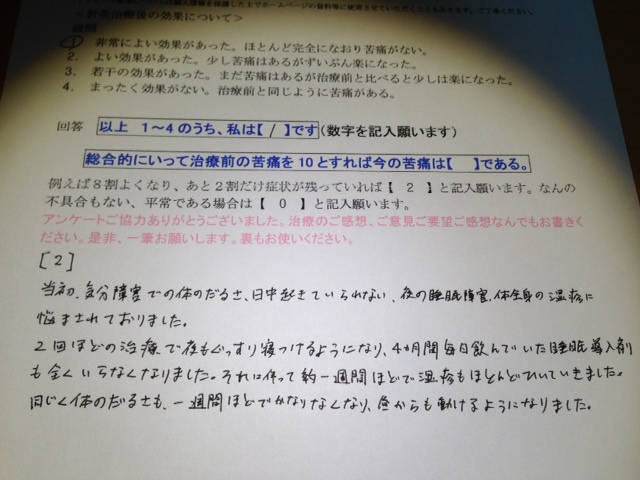 個人情報を保護した上でホームページの資料等に使用させていただくこともあります。ご了承ください。
＜針灸治療後の効果について＞
設問
1. 非常によい効果があった。ほとんど完全になおり苦痛がない。
2. よい効果があった。少し苦痛はあるがずいぶん楽になった。
3. 若干の効果があった。まだ苦痛はあるが治療前と比べると少しは楽になった。
4. まったく効果がない。治療前と同じように苦痛がある。
回答 以上 1～4のうち、私は【 / 】です(数字を記入願います)
総合的にいって治療前の苦痛を10とすれば今の苦痛は【 】である。
例えば8割よくなり、あと2割だけ症状が残っていれば【 2 】と記入願います。なんの
不具合もない、平常である場合は【 0 】と記入願います。
アンケートご協力ありがとうございました。治療のご感想、ご意見ご要望ご感想なんでもお書きく
ださい。是非、一筆お願いします。裏もお使いください。
[2]
当初、気分障害での体のだるさ、日中起きていられない、夜の睡眠障害、体全身の湿疹に
悩まされておりました。
2回ほどの治療で夜もぐっすり寝つけるようになり、4カ月間毎日飲んでいた睡眠導入剤
も全くいらなくなりました。それに伴って約一週間ほどで湿疹もほとんどひいていきました。
同じく体のだるさも、一週間ほどでかなりなくなり、昼からも動けるようになりました。